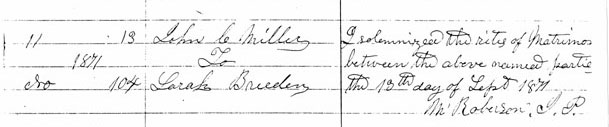 11 13 John C Miller I solemnized the rites of Matrimo
1871 To between the above named partie
No 104 Sarah Breeden the 13th day of Sept 1871
Wm Roberson, J. P.